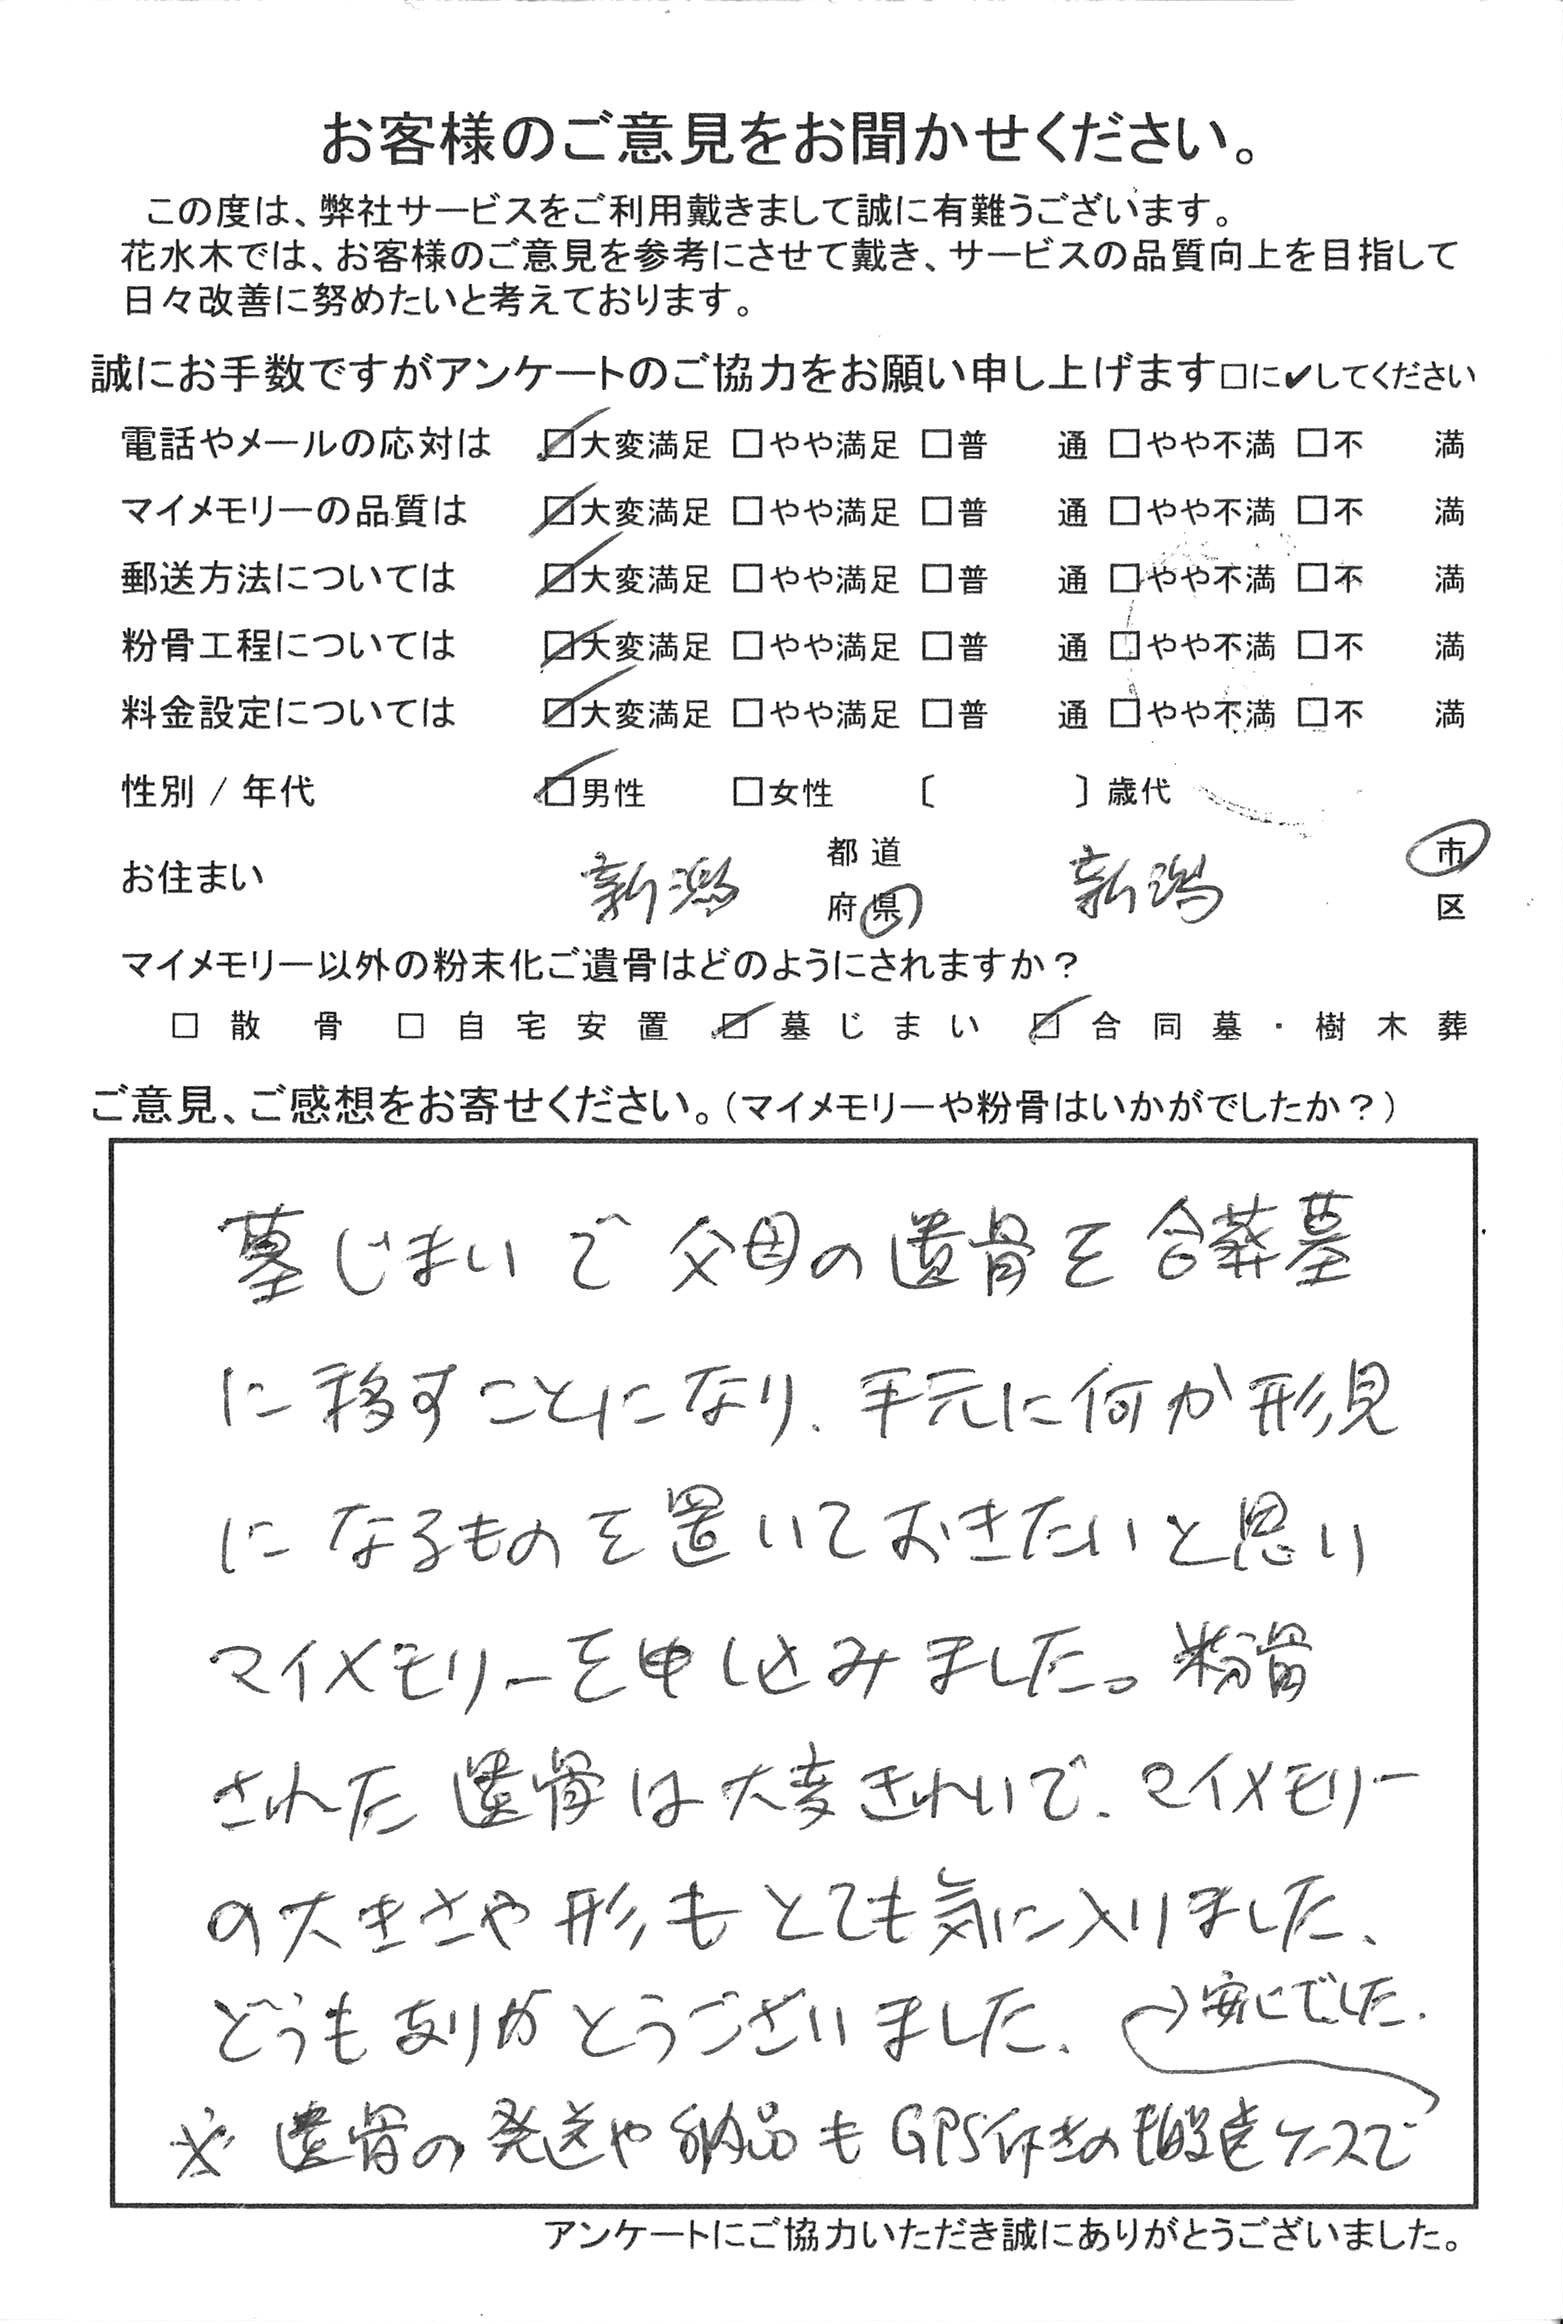 お客様のご意見をお聞かせください。
この度は、弊社サービスをご利用戴きまして誠に有難うございます。
花水木では、お客様のご意見を参考にさせて戴き、サービスの品質向上を目指して
日々改善に努めたいと考えております。
誠にお手数ですがアンケートのご協力をお願い申し上げます□に✔してください
電話やメールの応対は ☑大変満足 □やや満足 □普 通 □やや不満 □不 満
マイメモリーの品質は ☑大変満足 □やや満足 □普 通 □やや不満 □不 満
郵送方法については ☑大変満足 □やや満足 □普 通 □やや不満 □不 満
粉骨工程については ☑大変満足 □やや満足 □普 通 □やや不満 □不 満
料金設定については ☑大変満足 □やや満足 □普 通 □やや不満 □不 満
性別 / 年代 ☑男性 □女性 〔 〕歳代
お住まい 新潟 都道府県 新潟 市区
マイメモリー以外の粉末化ご遺骨はどのようにされますか？
□ 散骨 □ 自宅安置 ☑ 墓じまい ☑ 合同墓・樹木葬
ご意見、ご感想をお寄せください。（マイメモリーや粉骨はいかがでしたか？）
墓じまいで父母の遺骨を合葬墓
に移すことになり、手元に何か形見
になるものを置いておきたいと思い
マイメモリーを申し込みました。粉骨
された遺骨は大変きれいで、マイメモリー
の大きさや形もとても気に入りました、
どうもありがとうございました。
※遺骨の発送や納品もGPS付きの搬送ケースで
安心でした。
アンケートにご協力いただき誠にありがとうございました。